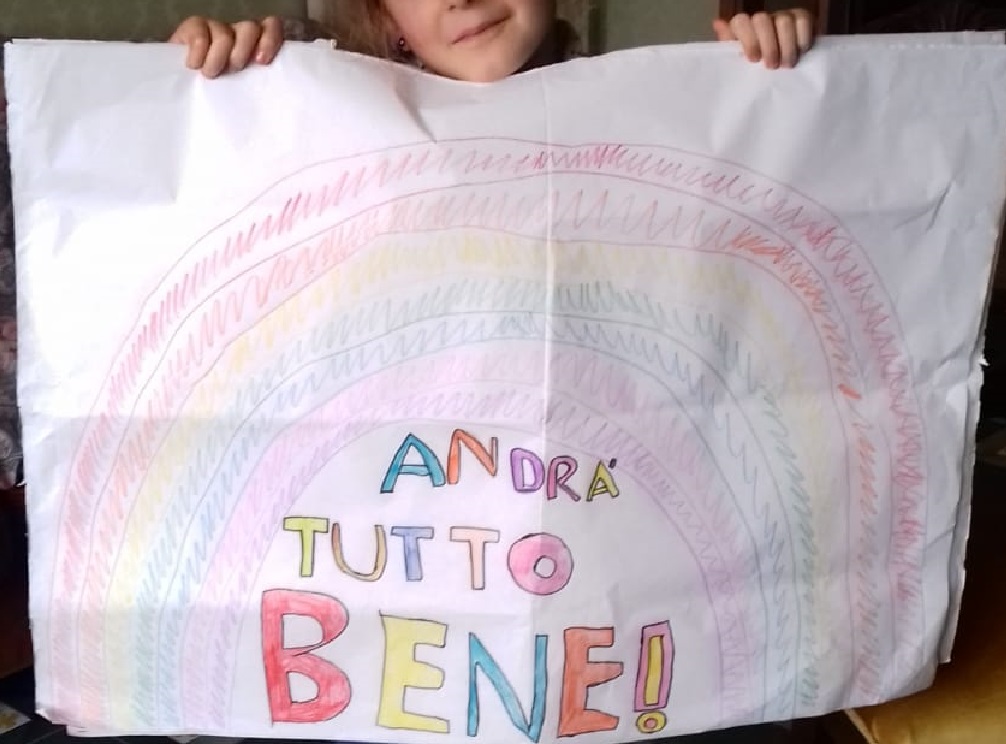 ANDRÁ
TUTTO
BENE!